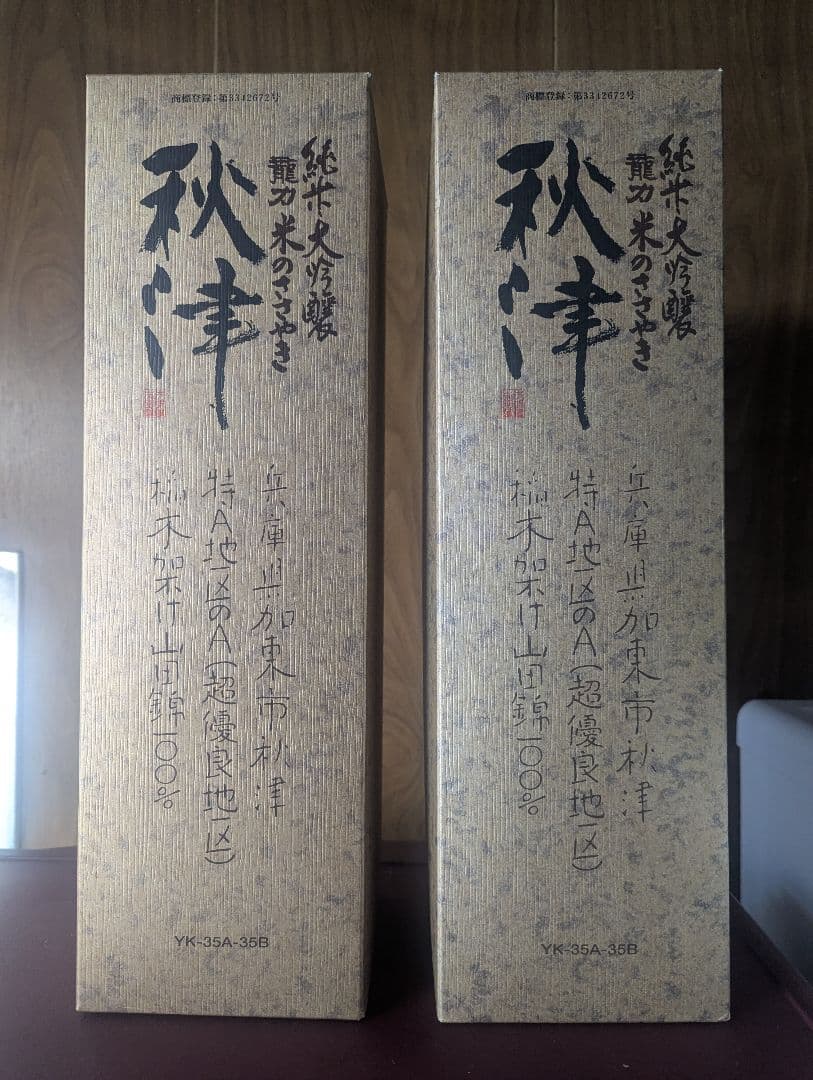 商標登録:第3342672号
純米大吟醸
龍力 米のささやき
秋津
兵庫県加東市秋津
特A地区のA(超優良地区)
稲木架け山田錦一〇〇%
YK-35A-35B
商標登録:第3342672号
純米大吟醸
龍力 米のささやき
秋津
兵庫県加東市秋津
特A地区のA(超優良地区)
稲木架け山田錦一〇〇%
YK-35A-35B